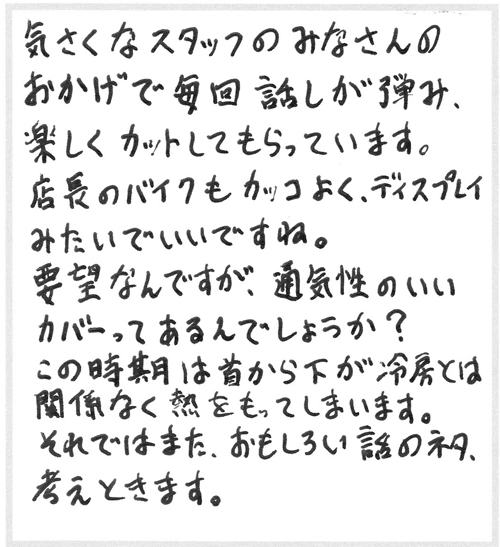 気さくなスタッフのみなさんの
おかげで毎回話しが弾み、
楽しくカットしてもらっています。
店長のバイクもカッコよく、ディスプレイ
みたいでいいですね。
要望なんですが、通気性のいい
カバーってあるんでしょうか?
この時期は首から下が冷房とは
関係なく熱をもってしまいます。
それではまた、おもしろい話のネタ、
考えときます。